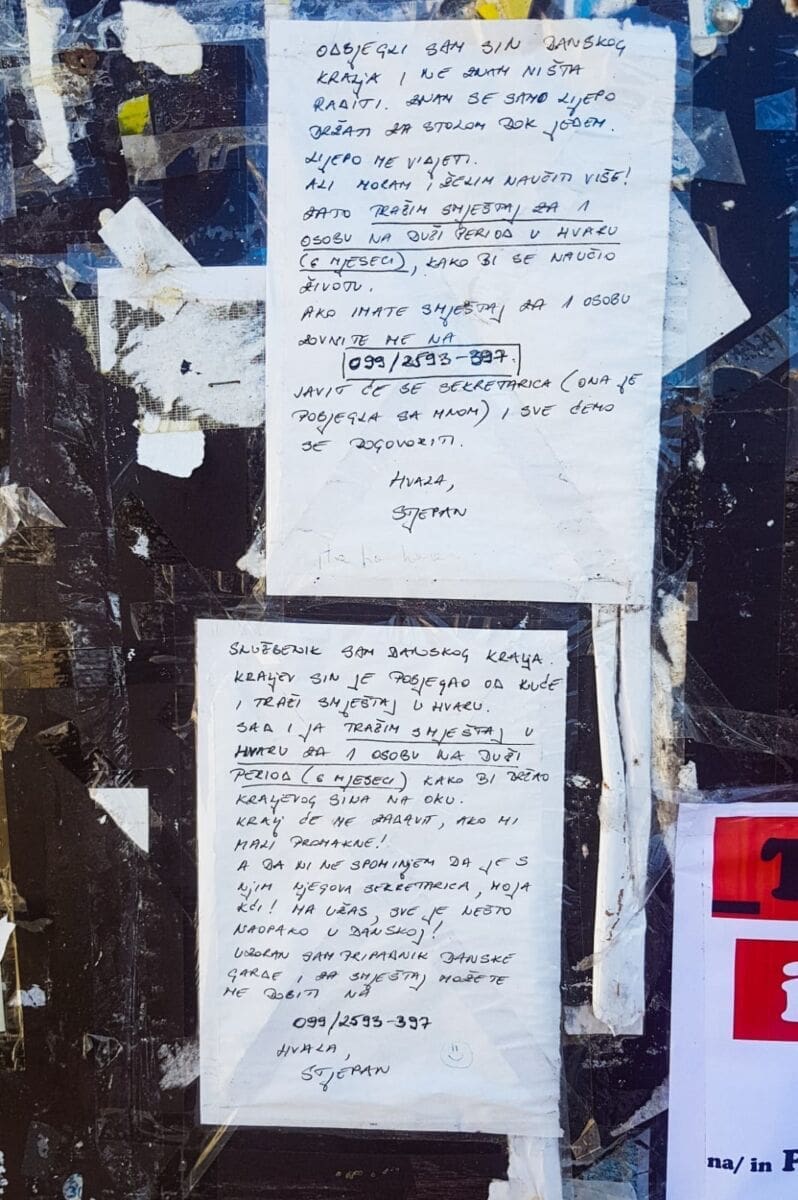 ODBJEGLI SAM SIN DANSKOG
KRALJA I NE ZNAM NIŠTA
RADITI. ZNAM SE SAMO LIJEPO
DRŽATI ZA STOLOM DOK JEDEM.
LIJEPO ME VIDJETI.
ALI MORAM I ŽELIM NAUČITI VIŠE!
ZATO TRAŽIM SMJEŠTAJ ZA 1
OSOBU NA DUŽI PERIOD U HVARU
(6 MJESECI), KAKO BI SE NAUČIO
ŽIVOTU.
AKO IMATE SMJEŠTAJ ZA 1 OSOBU
ZOVNITE ME NA
099/2593-397.
JAVIT ĆE SE SEKRETARICA (ONA JE
POBJEGLA SA MNOM) I SVE ĆEMO
SE DOGOVORITI.
HVALA,
STJEPAN
SLUŽBENIK SAM DANSKOG KRALJA.
KRALJEV SIN JE POBJEGAO OD KUĆE
I TRAŽI SMJEŠTAJ U HVARU.
SAD I JA TRAŽIM SMJEŠTAJ U
HVARU ZA 1 OSOBU NA DUŽI
PERIOD (6 MJESECI) KAKO BI DRŽAO
KRALJEVOG SINA NA OKU.
KRALJ ĆE ME ZADAVIT, AKO MI
MALI PROMAKNE!
A DA NI NE SPOMINJEM DA JE S
NJIM NJEGOVA SEKRETARICA, MOJA
KĆI! MA UŽAS, SVE JE NEŠTO
NAOPAKO U DANSKOJ!
UZORAN SAM PRIPADNIK DANSKE
GARDE I ZA SMJEŠTAJ MOŽETE
ME DOBITI NA
099/2593-397
HVALA,
STJEPAN
na/ in